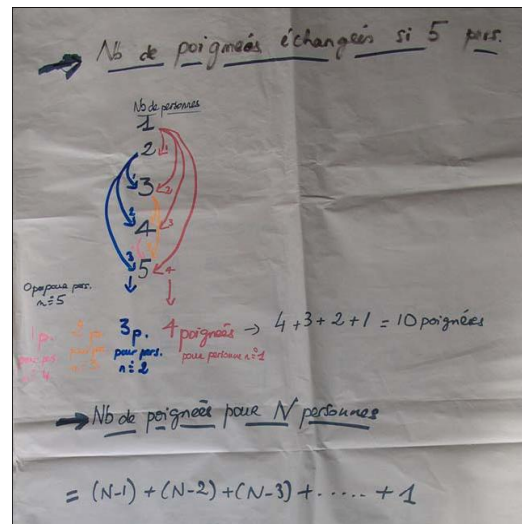 Nb de poigneés échangées si 5 pers.
Nb de personnes
1
2
3
4
5
1
2
3
4
1
2
3
0 p. pour pers.
n°5
1 p.
pour pers.
n°4
2 p.
pour pers.
n°3
3 p.
pour pers.
n°2
4 poigneés
pour personne n°1
→ 4+3+2+1 = 10 poigneés
Nb de poigneés pour N personnes
= (N-1) + (N-2) + (N-3) + ..... + 1